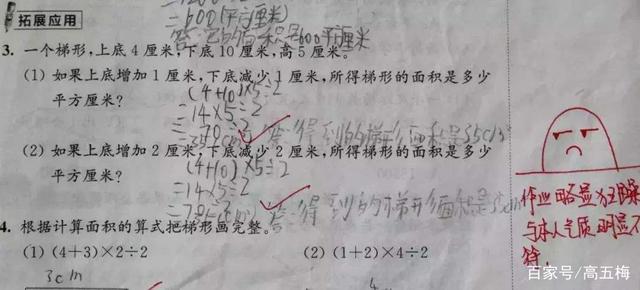 =600(平方厘米)
拓展应用
3. 一个梯形,上底 4 厘米,下底 10 厘米,高 5 厘米。
(1) 如果上底增加 1 厘米,下底减少 1 厘米,所得梯形的面积是多少
平方厘米?
(4+10)×5÷2
=14×5÷2
=70÷2
答:得到的梯形面积是35cm²
(2) 如果上底增加 2 厘米,下底减少 2 厘米,所得梯形的面积是多少
平方厘米?
(4+10)×5÷2
=14×5÷2
答:得到的梯形面积是35cm
4. 根据计算面积的算式把梯形画完整。
(1) (4+3)×2÷2
(2) (1+2)×4÷2
3cm
4
作业略显
与本人气质明显不
符.
百家号/高五梅